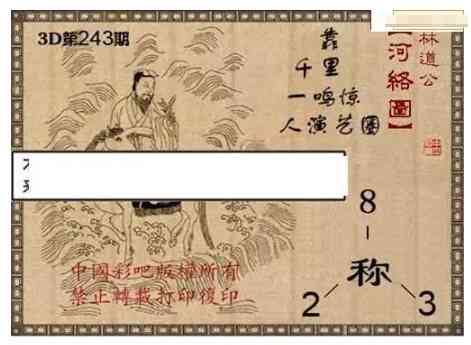 3D第243期
千里
一鸣惊
人演艺團
林道公
【河絡圖】
8
称
2 3
中國彩吧版權所有
禁止轉載打印復印